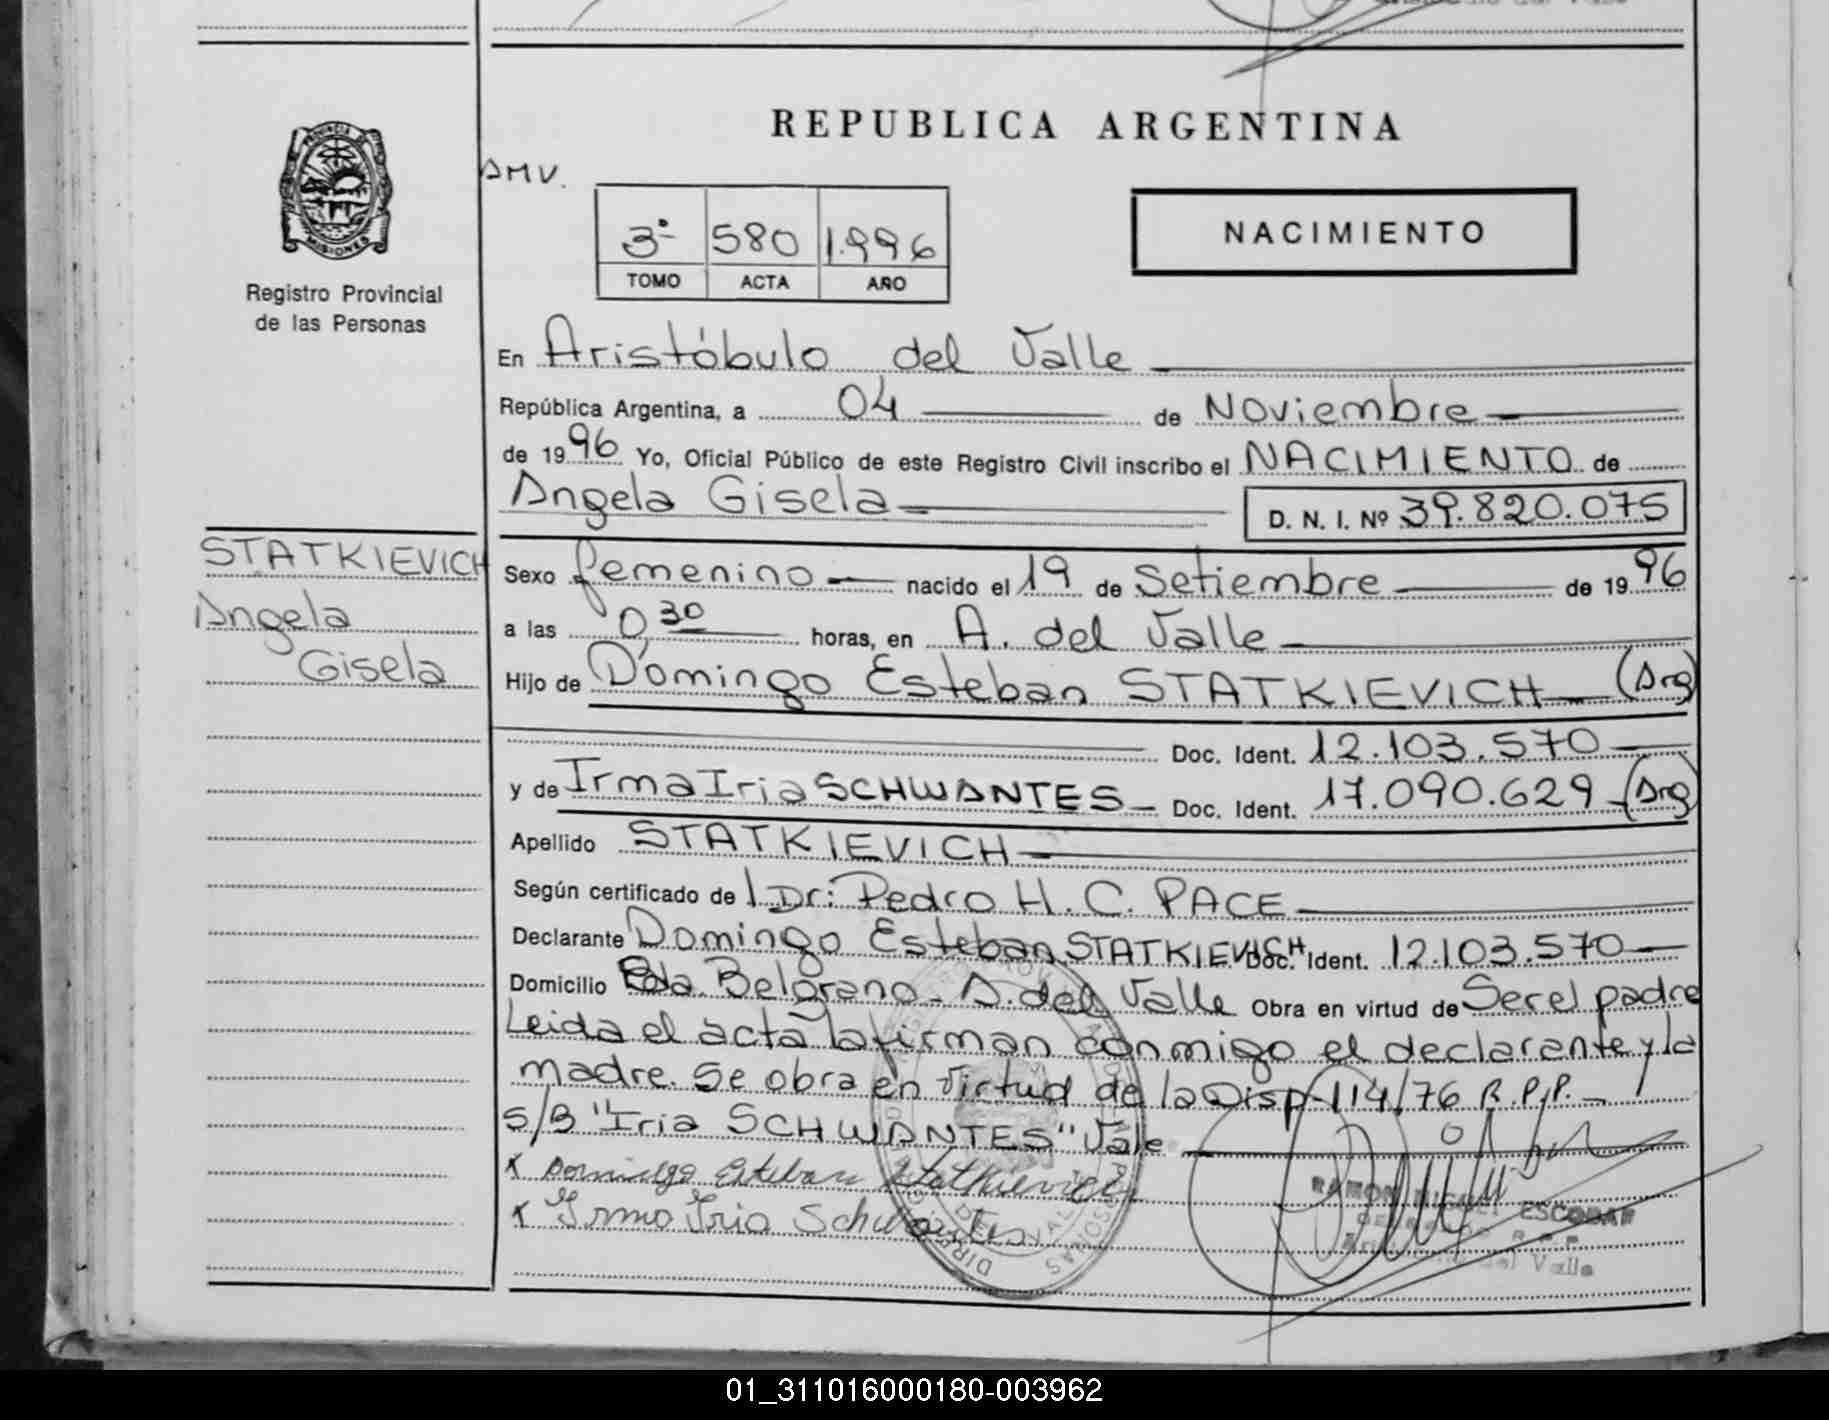 REPUBLICA ARGENTINA
PROVINCIA DE
MISIONES
Registro Provincial
de las Personas
AMV.
3º 580 1.996
TOMO ACTA AÑO
NACIMIENTO
En Aristóbulo del Valle
República Argentina, a 04 de Noviembre
de 1996 Yo, Oficial Público de este Registro Civil inscribo el NACIMIENTO de
Angela Gisela D. N. I. Nº 39.820.075
STATKIEVICH
Angela
Gisela
Sexo femenino nacido el 19 de Setiembre de 1996
a las 0,30 horas, en A. del Valle
Hijo de Domingo Esteban STATKIEVICH (Arg)
Doc. Ident. 12.103.570
y de Irma Iria SCHWANTES Doc. Ident. 17.090.629 (Arg)
Apellido STATKIEVICH
Según certificado de l Dr: Pedro H. C. PACE
Declarante Domingo Esteban STATKIEVICH Doc. Ident. 12.103.570
Domicilio Pda. Belgrano - A. del Valle Obra en virtud de Ser el padre
Leida el acta la firman conmigo el declarante y la
madre. Se obra en virtud de la Disp. 114/76 R.P.P.
S/B "Iria SCHWANTES" Vale
x Domingo Esteban Statkievich
x Irma Iria Schwantes
RAMON MIGUEL ESCOBAR
R.P.P.
del Valle
01_311016000180-003962